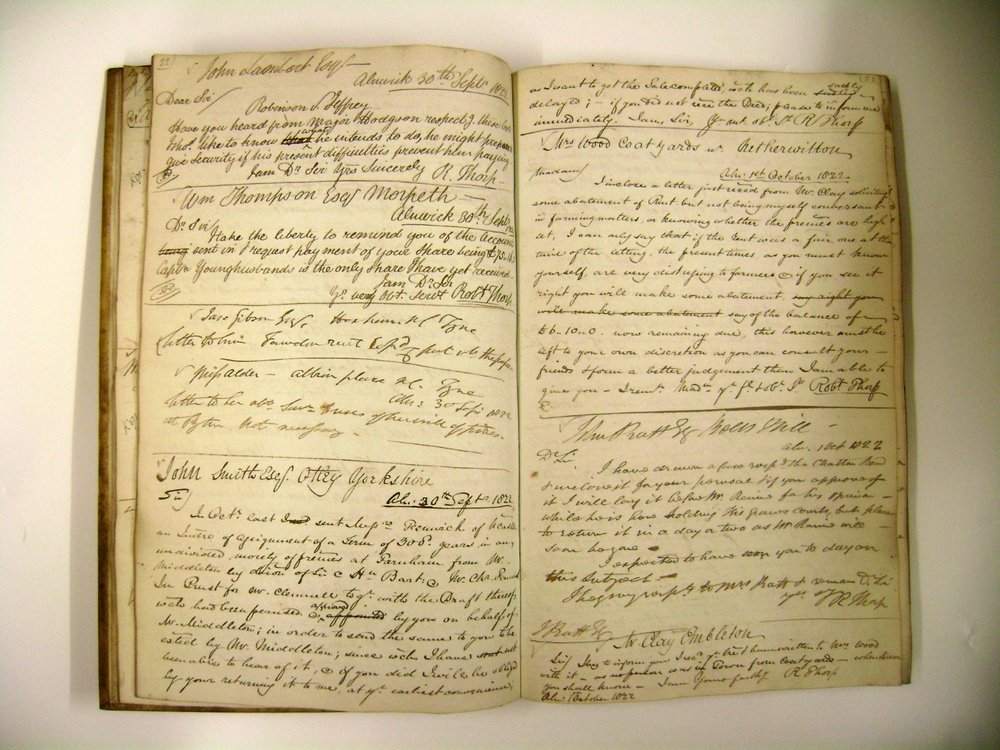 John Lambert Esqr
Alnwick 30th Septr 1822
Dear Sir
Robinson & Jeffrey
Have you heard from Major Hodgson respectg. these
like to know what he intends to do, he might
give Security if his present difficulties prevent him paying
I am Dr Sir Yrs Sincerely R. Thorp
Wm Thompson Esqr Morpeth
Alnwick 30th Septr
Dr Sir
I take the liberty to remind you of the Account
sent in & request payment of your Share being
Captn Younghusbands is the only share I have yet received
I am Dr Sir
Yr very obt. Servt Robt Thorp
Gibson Esqr Hexham
Letter to him Fawdon rent
Miss Alder - Albion place
Aln: 30 Sepr 1822
letter to her
at not necessary
John Smith Esqr. Otley Yorkshire
Sir
Aln: 30th Septr 1822
In Octr last I sent Renwick of
an Assignment of a Term of 300 years in an
undivided moiety of at Farnham from Mr
Middleton by of Sir C. Hn Bart. & Mr Chas
In Trust for Mr Clennell with the Draft thereof
wch had been perused & approved by you on behalf of
Mr Middleton; in order to send the same to you to be
by Mr Middleton; since wch I have not
been able to hear of it, & if you did I will be obliged
by your returning it to me, at yr earliest convenience,
as I want to get the Sale completed, wch has been sadly
delayed; - if you did not rece the Deed, please to inform me
immediately. I am Sir, Yr mt. obt. St. R Thorp
Mrs Wood Coatyards nr. Netherwitton
Aln: 1st October 1822
Madam
I inclose a letter just reced from Mr Clay soliciting
some abatement of Rent but not being myself conversant
in farming matters, or knowing whether the premes are high
let, I can only say that if the rent was a fair one at the
time of the letting, the present times, as you must know
yourself, are very distressing to farmers & if you see it
right you will make some abatement, say right you
will make some abatement say of the balance of
£6.10.0 now remaining due, this however must be
left to your own discretion as you can consult your
friends & form a better judgement than I am able to
give you - I remn. Madm. yr ft. & obt. St Robt Thorp
John Pratt Esq Bolts Mill
Aln. 1 Oct 1822
Dr Sir
I have drawn a case respg the Chatton Road
& inclose it for your perusal if you approve of
it I will lay it before Mr Raine for his opinion
while he is here holding his court, but please
to return it in a day or two as Mr Raine will
soon be gone
I expected to have seen you to day on
this Subject
I beg my respts to Mrs Pratt & remain Dr Sir
R Thorp
J Pratt Esq
Mr Clay Embleton
Sir I beg to inform you I recd yr letr & have written to Mrs Wood
with it - as no person was in Town from Coatyards - when
you shall know - I am Yours faithfy R Thorp
Aln: 1 October 1822